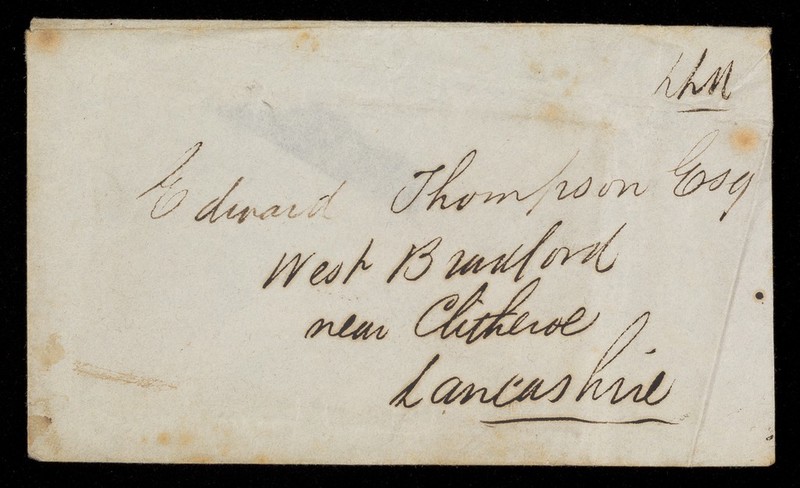 Edward Thompson Esq
West Bradford
near Clitheroe
Lancashire